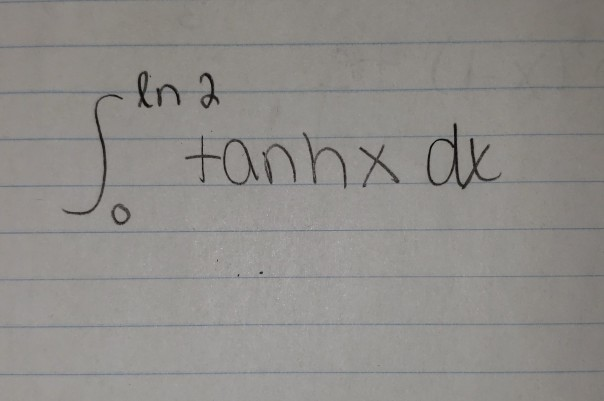 ∫₀^{ln 2} tanhx dx